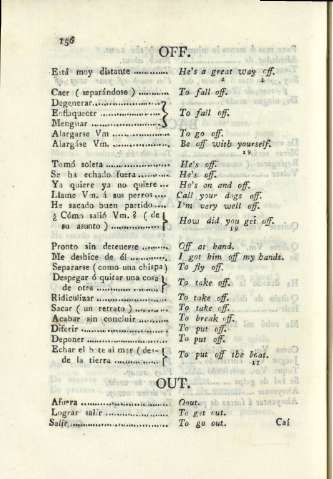 156
OFF.
Está muy distante ............ He's a great way off.
Caer ( separándose ) ......... To fall off.
Degenerar....................
Enflaquecer .................. } To fall off.
Menguar ......................
Alargarse Vm ................. To go off.
Alargáse Vm. ................. Be off with yourself.
19
Tomó soleta .................. He's off.
Se ha echado fuera ........... He's off.
Ya quiere ya no quiere ... He's on and off.
Llame Vm. á sus perros.... Call your dogs off.
He sacado buen partido.... I'm very well off.
¿ Cómo salió Vm. ? ( de { How did you get off.
su asunto ) ..................
19
Pronto sin detenerse ......... Off at hand.
Me deshice de él ............. I got him off my hands.
Separarse ( como una chispa) To fly off.
Despegar ó quitar una cosa } To take off.
de otra ......................
Ridiculizar .................. To take off.
Sacar ( un retrato ) ......... To take off.
Acabar sin concluir .......... To break off.
Diferir ...................... To put off.
Deponer ...................... To put off.
Echar el bote al mar ( des- { To put off the boat.
de la tierra .................
17
OUT.
Afuera ....................... Oout.
Lograr salir ................. To get out.
Salir......................... To go out.
Caí